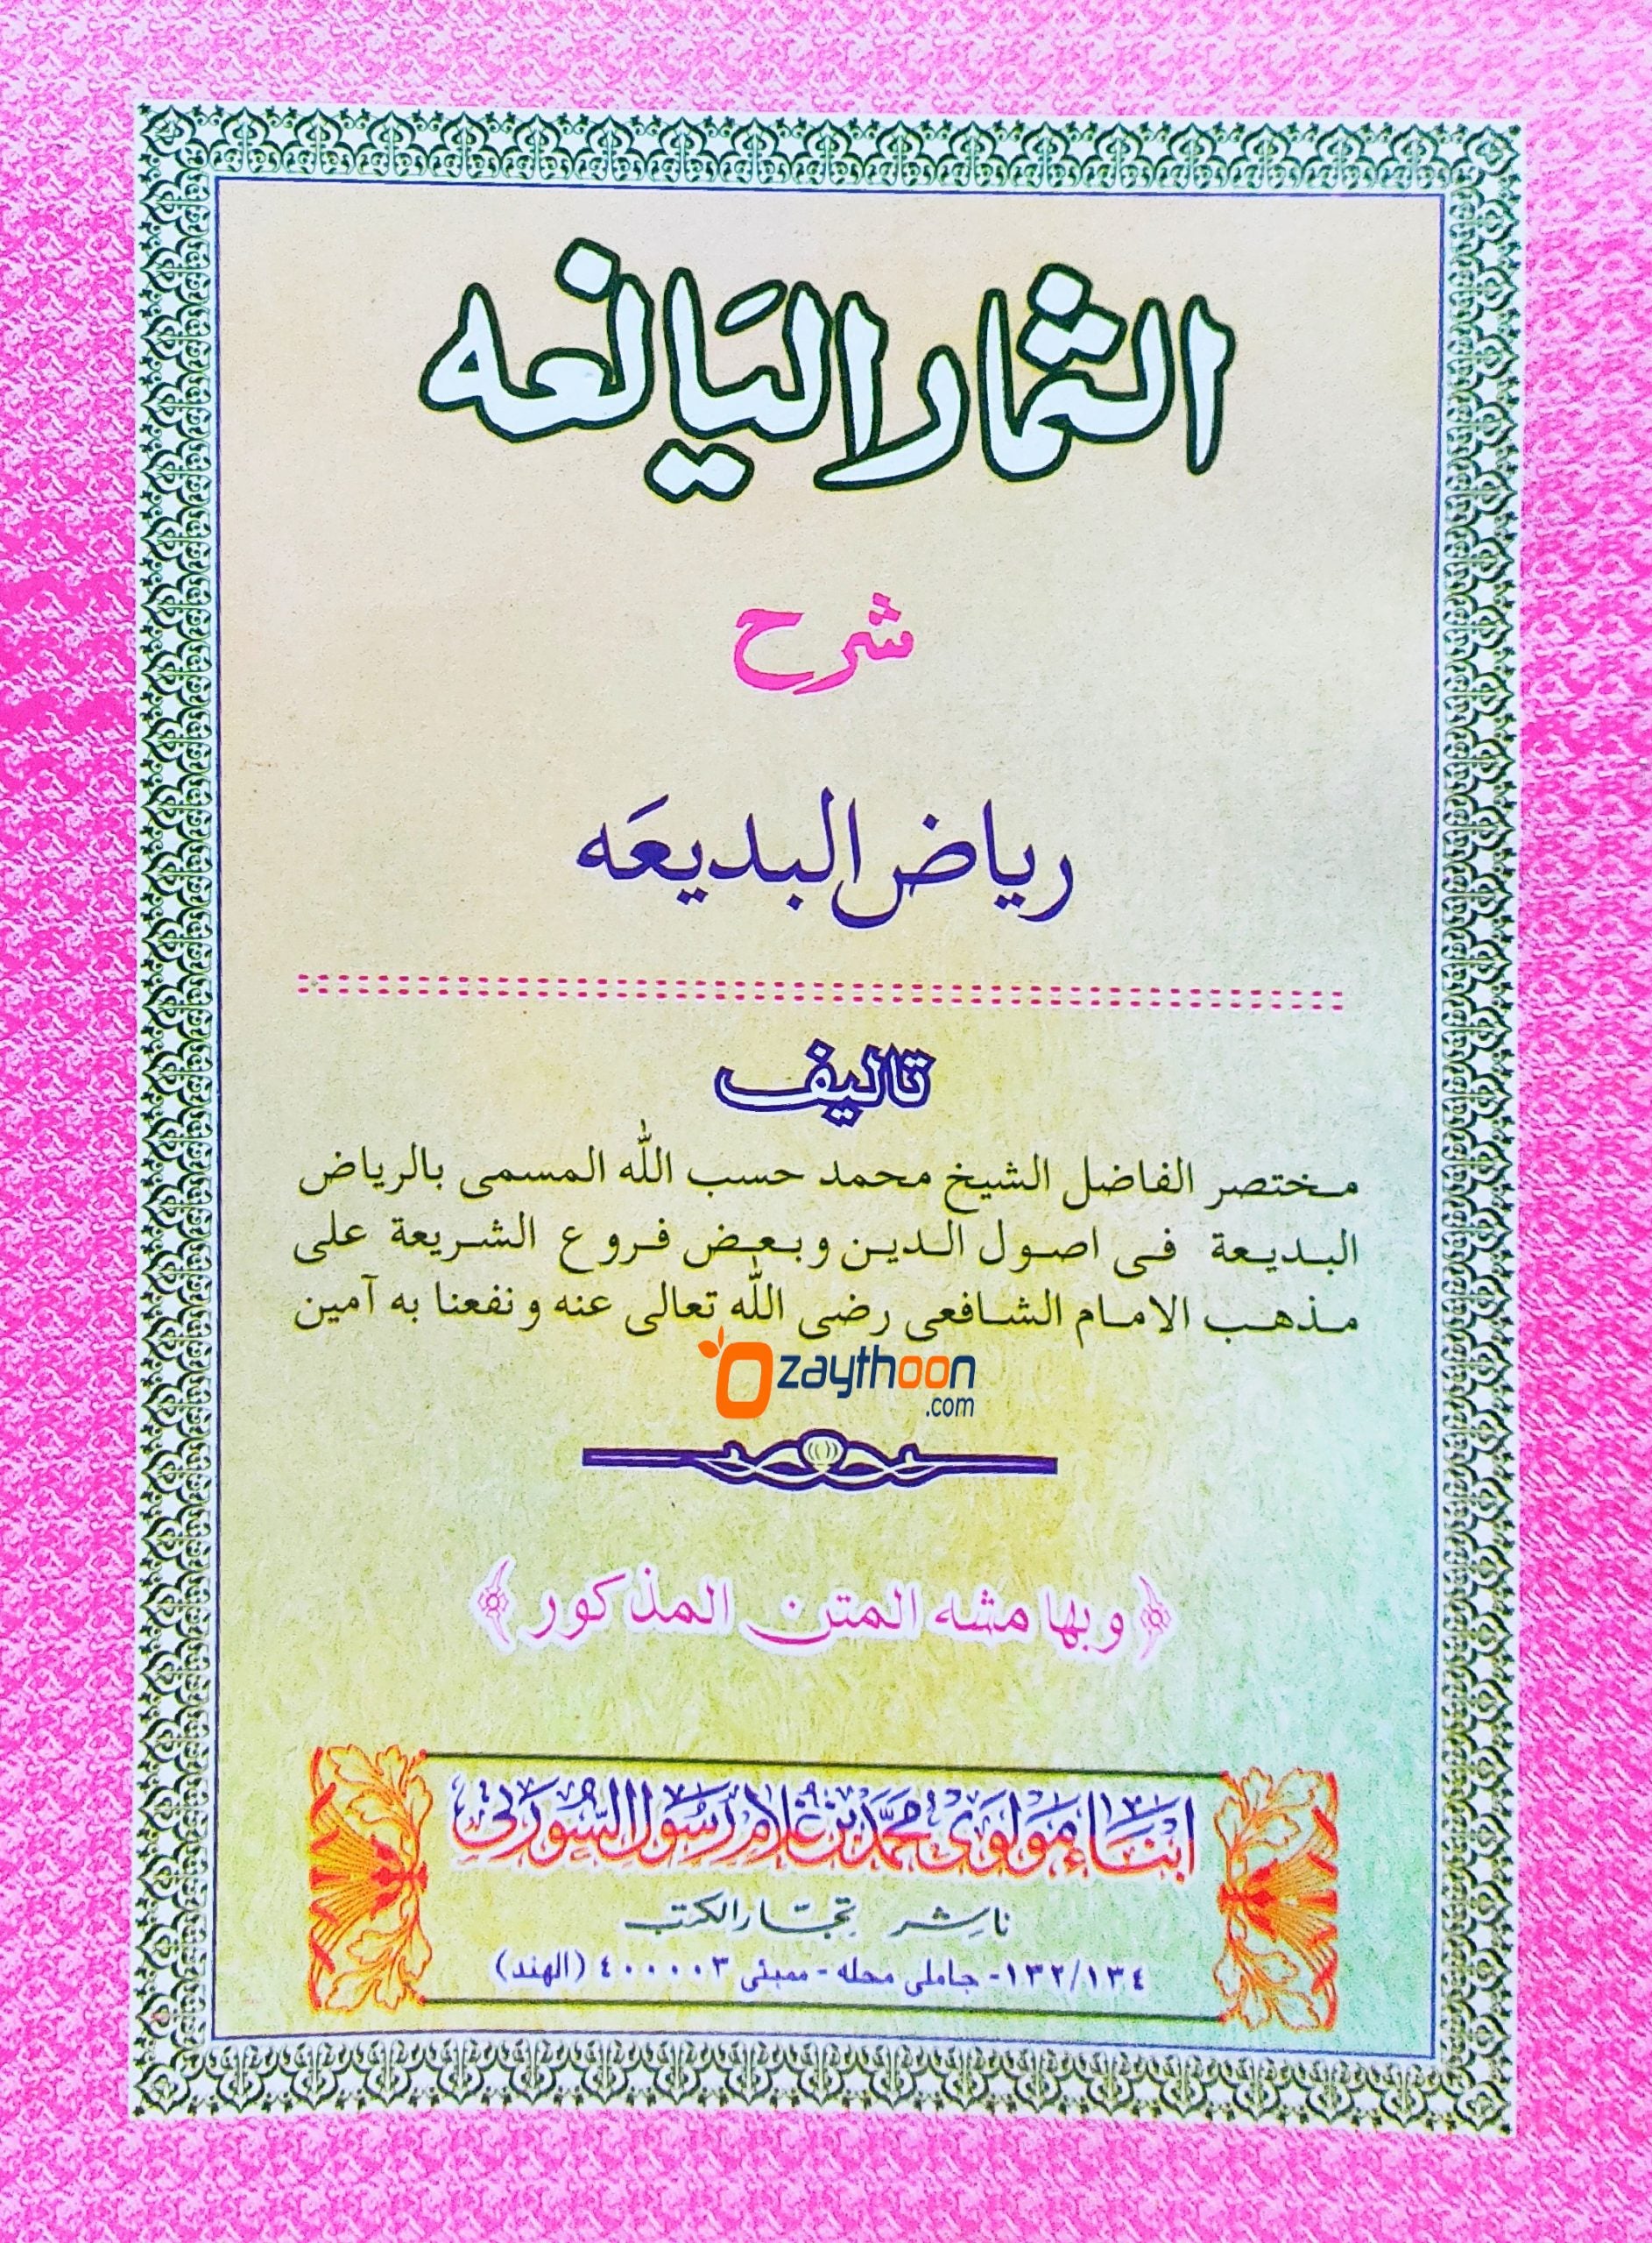 الثمار اليانعه
شرح
رياض البديعَه
تاليف
مختصر الفاضل الشيخ محمد حسب الله المسمى بالرياض
البديعة فى اصول الدين وبعض فروع الشريعة على
مذهب الامام الشافعى رضى الله تعالى عنه ونفعنا به آمين
zaythoon
.com
﴿ وبهامشه المتن المذكور ﴾
ابناء مولوى محمد بن غلام رسول السورتى
ناشر تجار الكتب
١٣٢/١٣٤- جاملى محله - ممبئى ٤٠٠٠٠٣ (الهند)